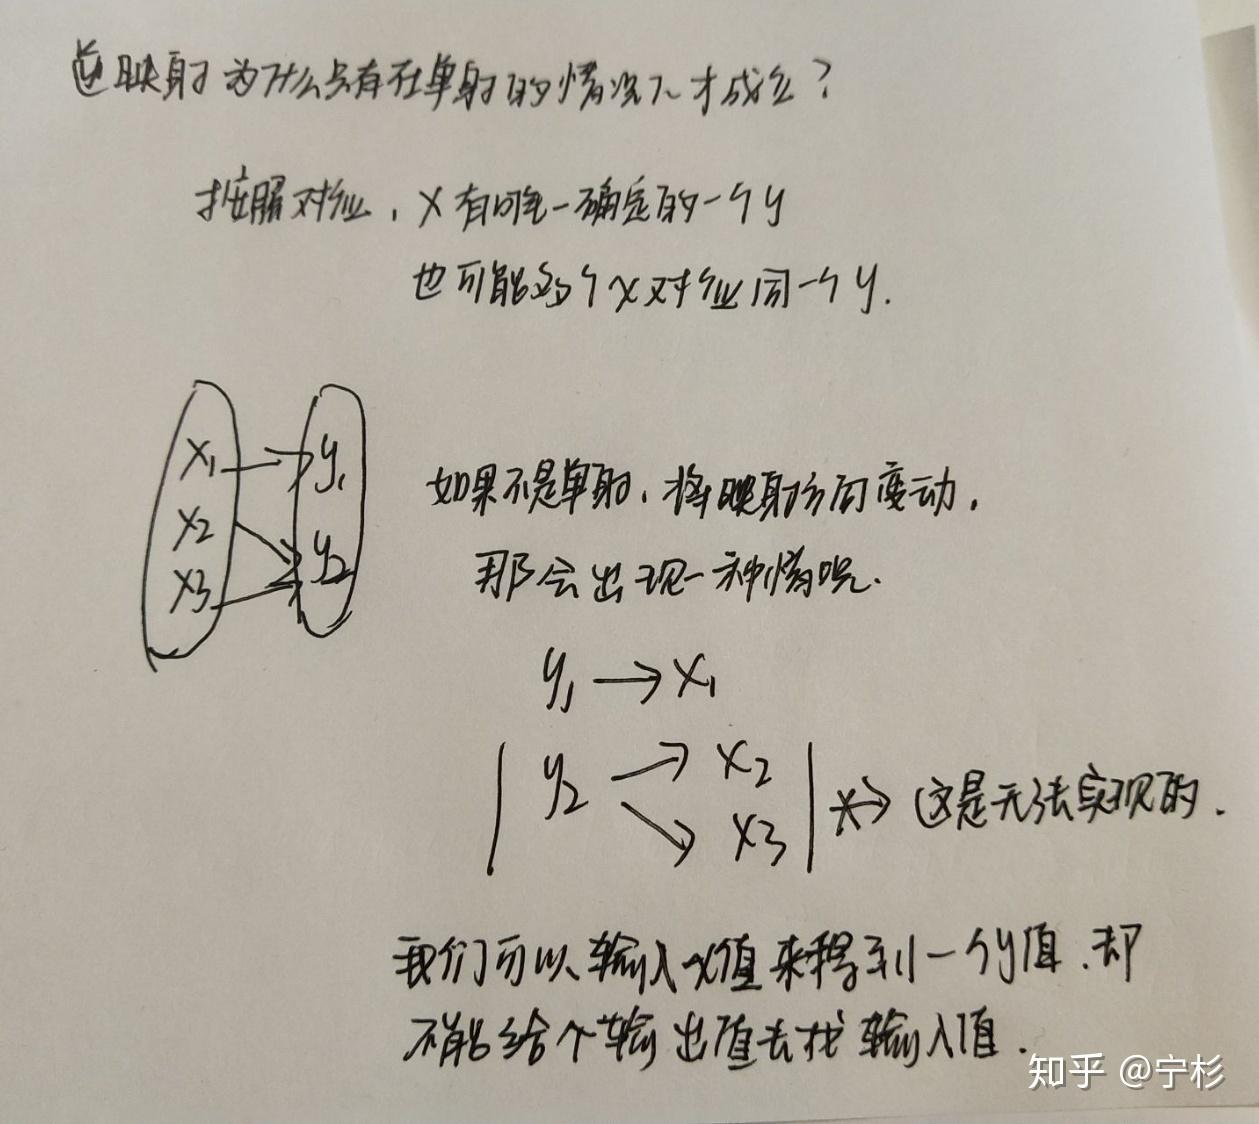 逆映射为什么只有在单射的情况下才成立？
按照对应，x有唯一确定的一个y
也可能多个x对应同一个y.
x₁ → y₁
x₂
x₃
y₂
如果不是单射，将映射方向变动，
那会出现一种情况.
y₁ → x₁
y₂ → x₂
→ x₃
→ 这是无法实现的.
我们可以输入x值来得到一个y值.却
不能给个输出值去找输入值.
知乎 @宁杉